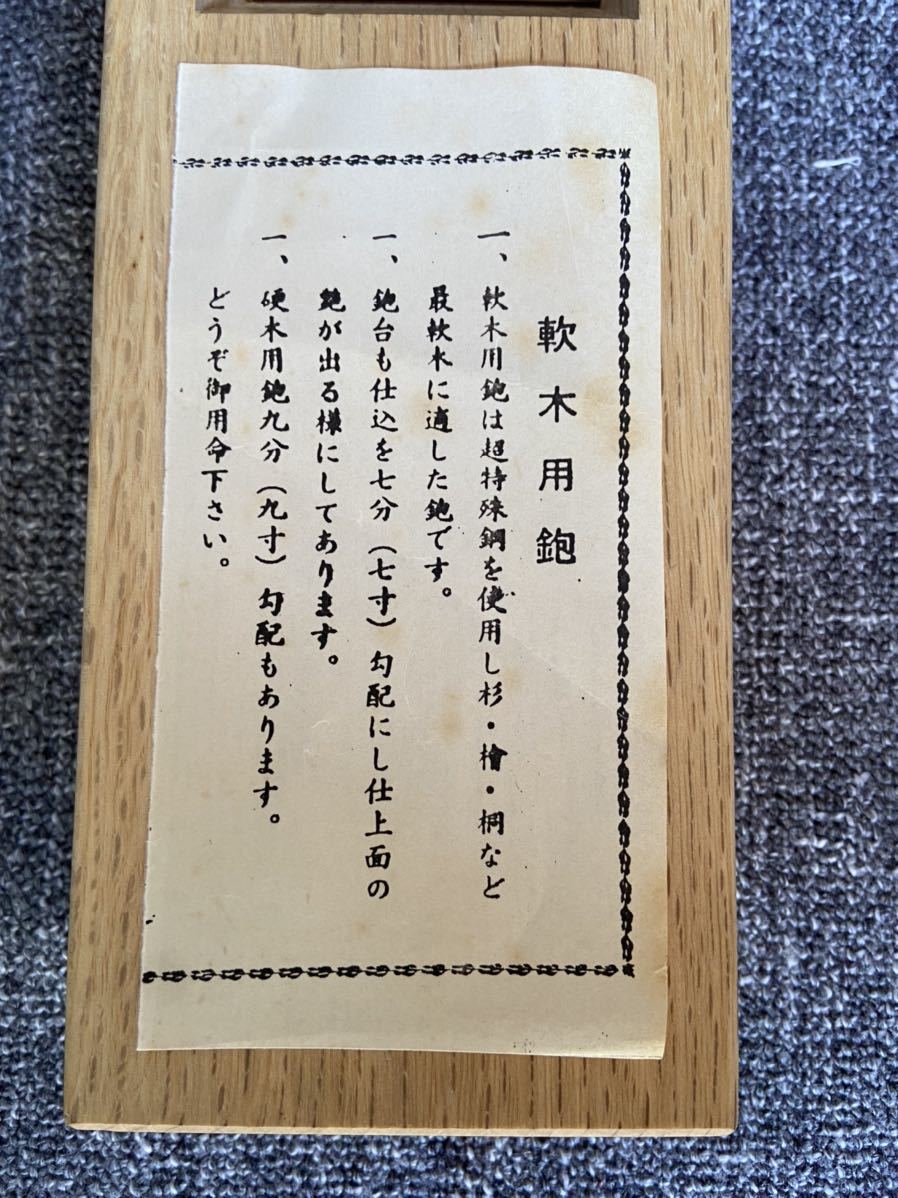 軟木用鉋
一、軟木用鉋は超特殊鋼を使用し杉・檜・桐など
最軟木に適した鉋です。
一、鉋台も仕込を七分（七寸）勾配にし仕上面の
艶が出る様にしてあります。
一、硬木用鉋九分（九寸）勾配もあります。
どうぞ御用命下さい。